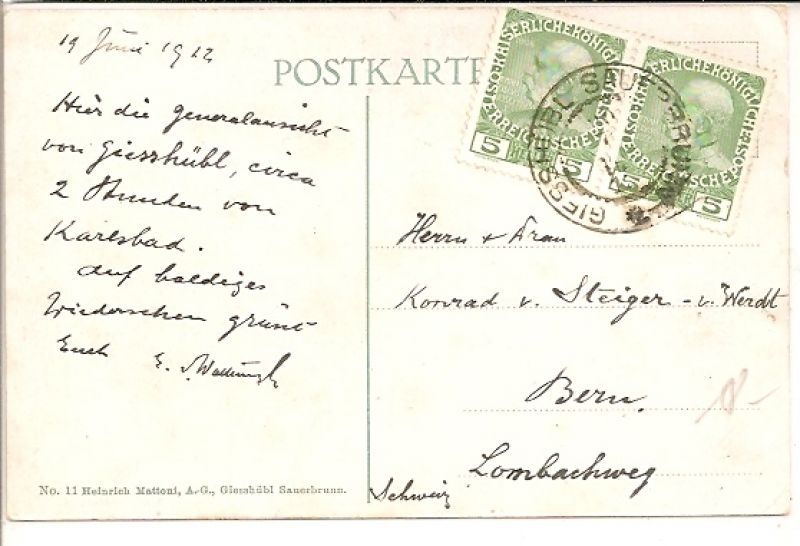 19 Juni 1912
POSTKARTE
Hier die Generalansicht
von Giesshübl, circa
2 Stunden von
Karlsbad.
Auf baldiges
Wiedersehen grüsst
Euch E. v.
SERLICHEKÖNIGL
ERREICHISCHEPOST
5 5
SERLICHEKÖNIGL
ERREICHISCHEPOST
5 5
GIESSHÜBL SAUERBRUNN
Herrn & Frau
Konrad v. Steiger - v. Werdt
Bern.
Lombachweg
Schweiz
No. 11 Heinrich Mattoni, A.-G., Giesshübl Sauerbrunn.